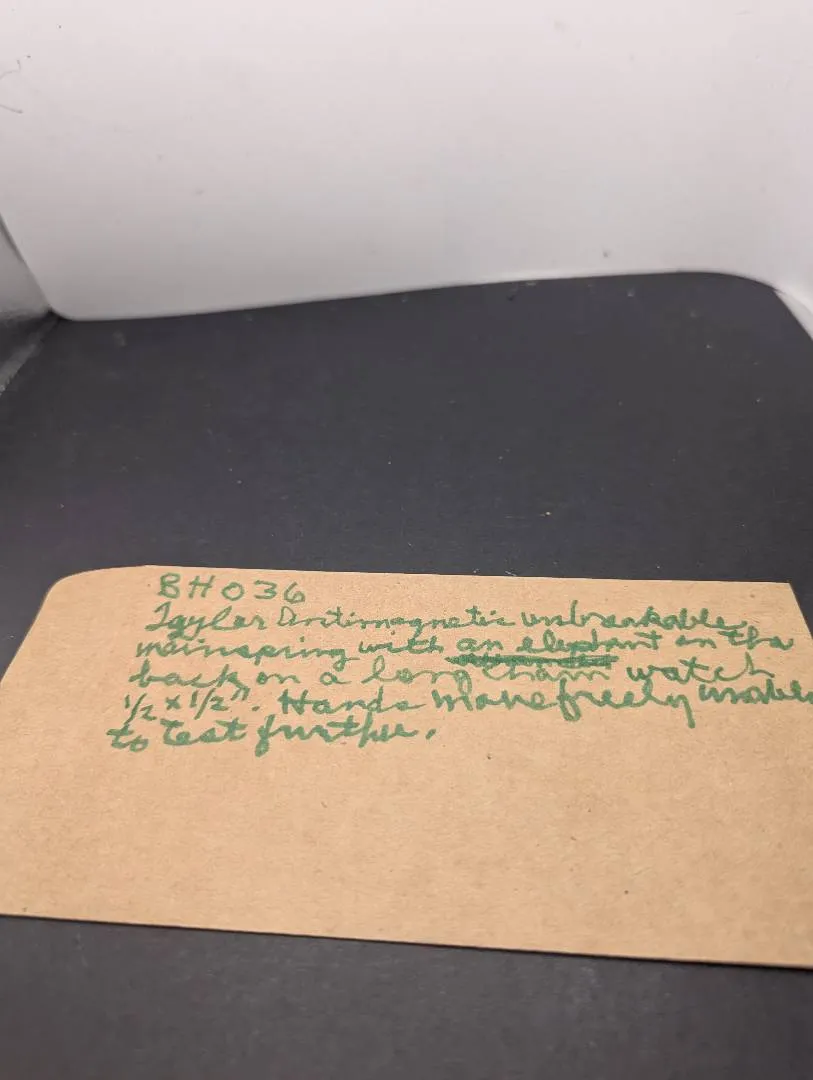 BH036
Tayler Antimagnetic unbreakable
mainspring with an elephant on the
back on a long chain watch
1/2 x 1/2". Hands move freely unable
to test further.